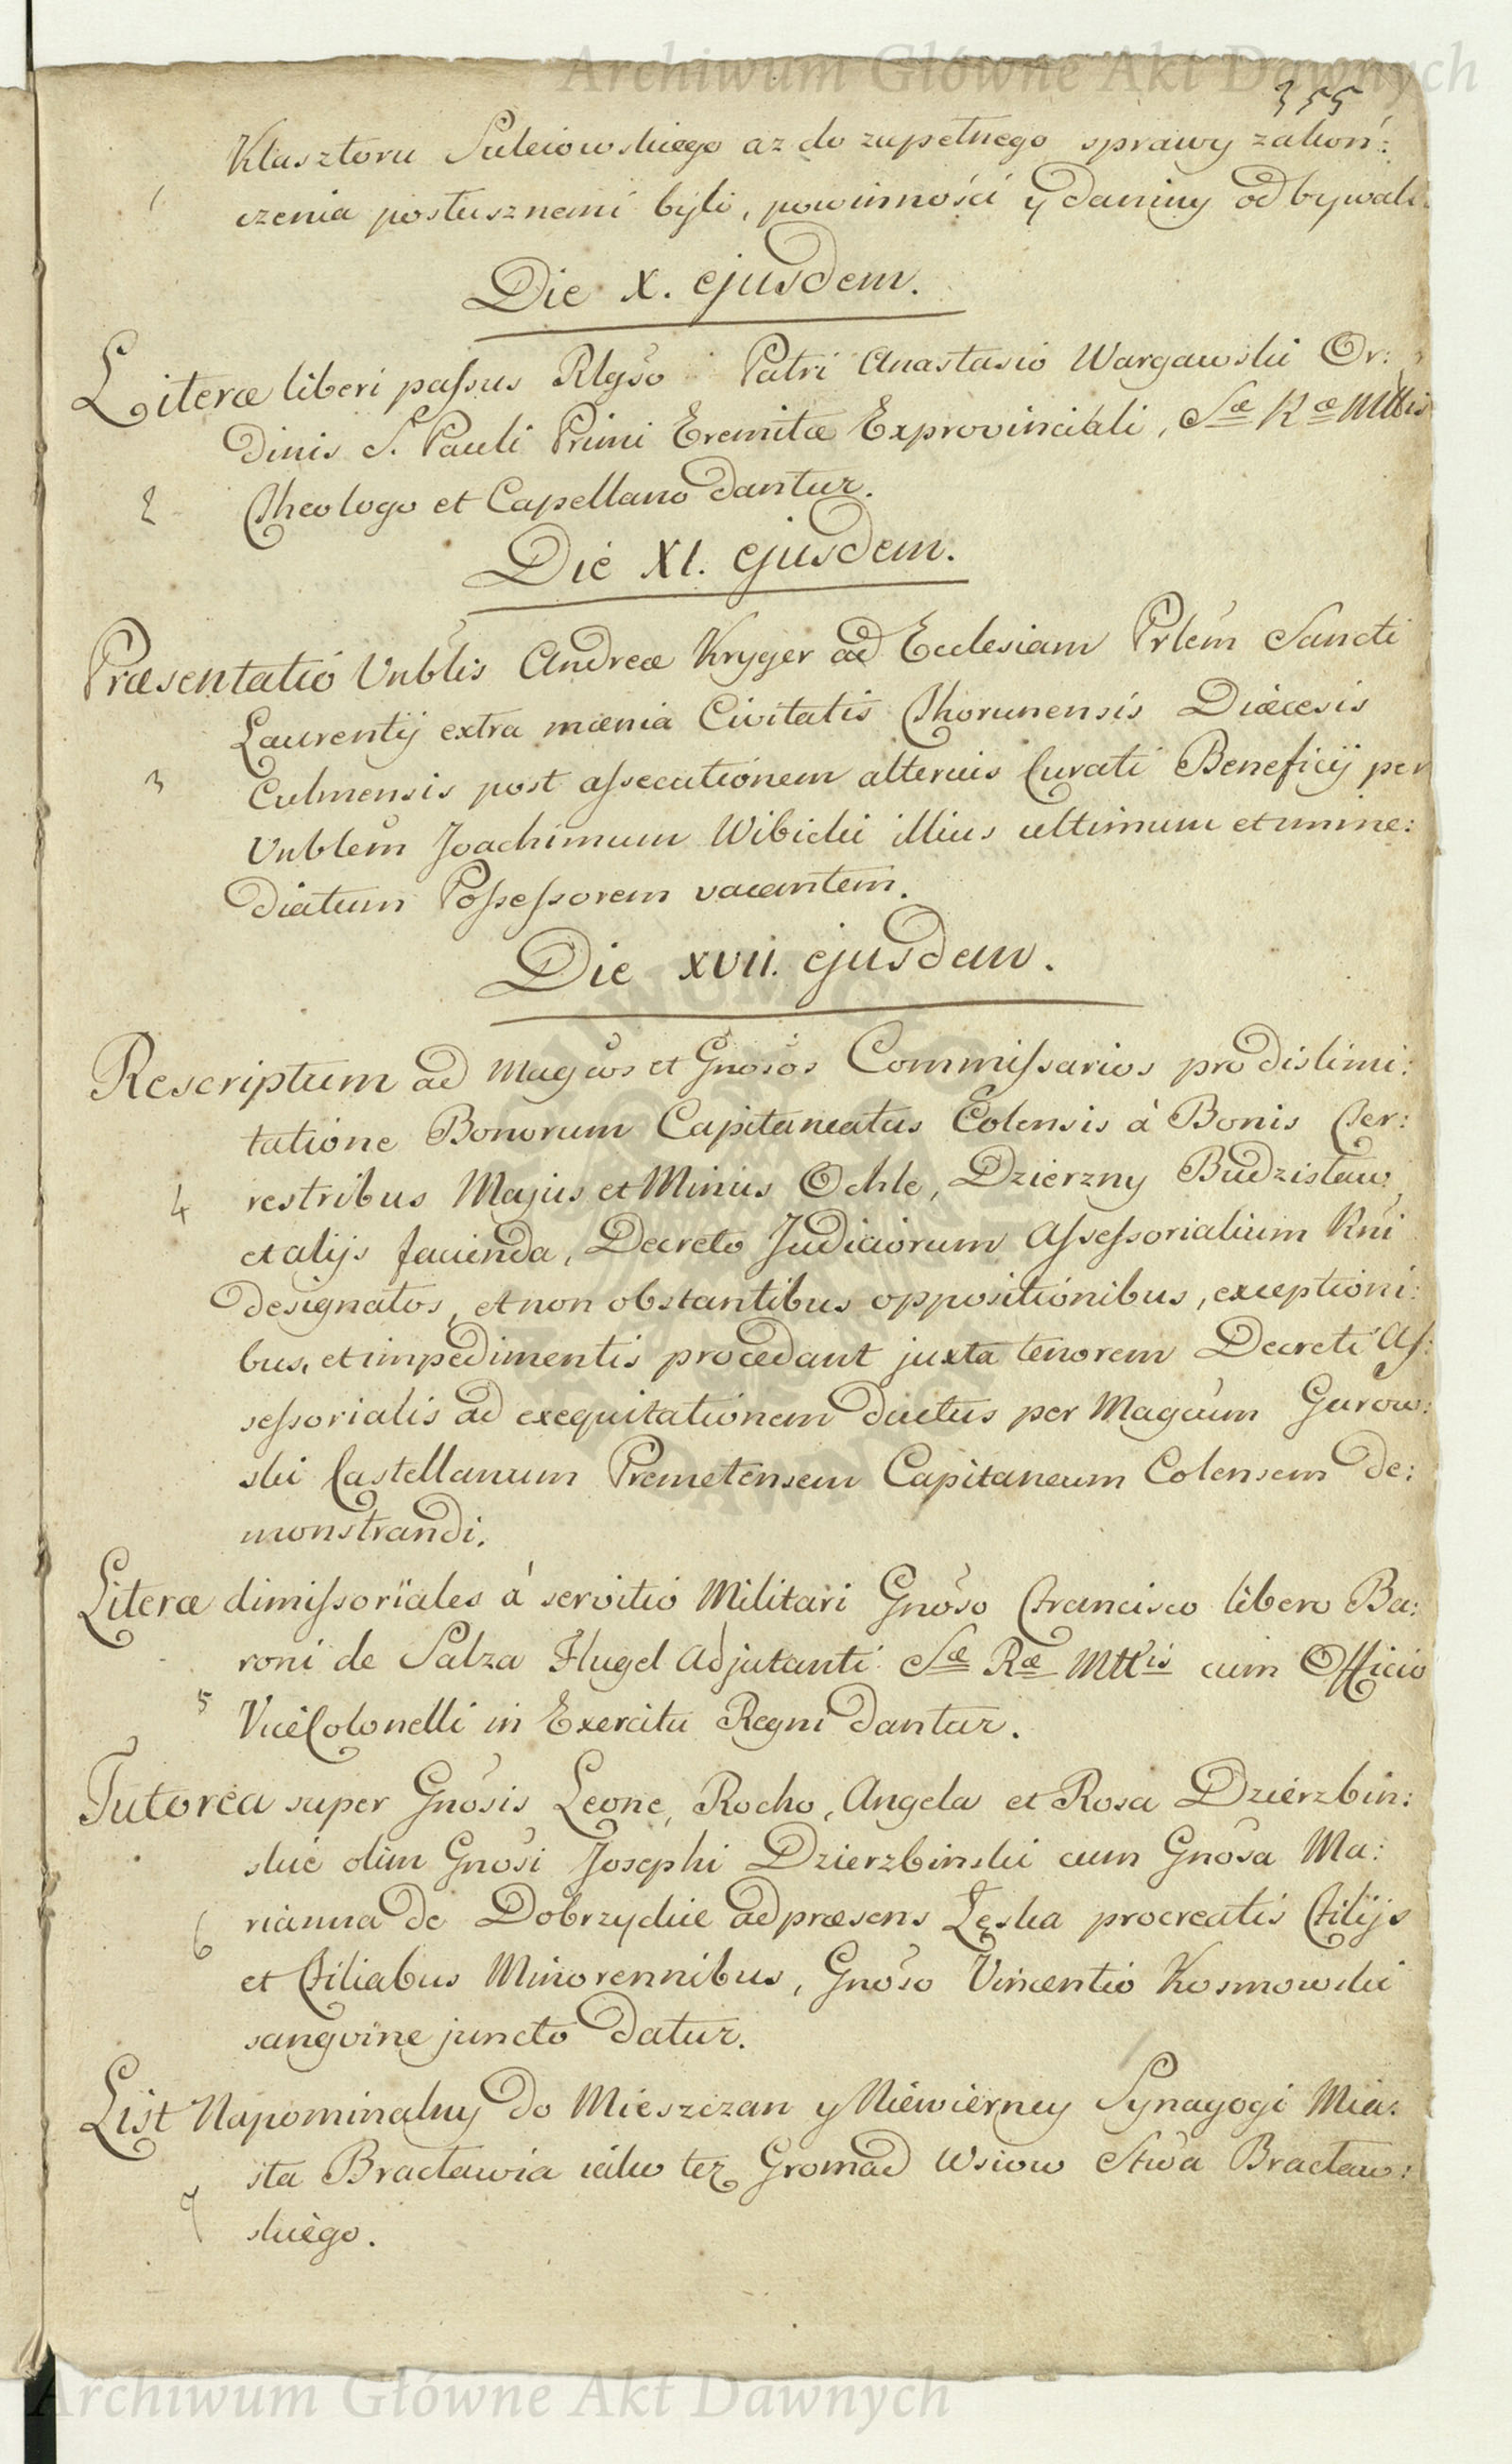 Archiwum Główne Akt Dawnych
355
Klasztoru Suleiowskiego az do zupełnego sprawy zakoń:
1 czenia posłusznemi byli, powinności y daniny odbywali.
Die X. ejusdem.
Literæ liberi passus Rlgso Patri Anastasio Wargawski Or:
dinis S. Pauli Primi Eremitæ Exprovinciali, Sæ Ræ Mttis
2 Theologo et Capellano dantur.
Die XI. ejusdem.
Præsentatio Vnblis Andreæ Kryger ad Ecclesiam Prlem Sancti
Laurentij extra mænia Civitatis Thorunensis Diæcesis
3 Culmensis post assecutionem alterius Curati Beneficij per
Vnblem Joachimum Wibicki illius ultimum et imme:
diatum Possessorem vacantem.
Die XVII. ejusdem.
Rescriptum ad Magcos et Gnosos Commissarios pro dislimi:
tatione Bonorum Capitaneatus Colensis à Bonis Ter:
4 restribus Majus et Minus Ochle, Dzierzny Budzisław,
et alijs facienda, Decreto Judiciorum Assessorialium Rni
designatos, et non obstantibus oppositionibus, exceptioni:
bus, et impedimentis procedant juxta tenorem Decreti As:
sessorialis ad exequitationem ductus per Magcum Gurow:
ski Castellanum Premetensem Capitaneum Colensem de:
monstrandi.
Literæ dimissoriales à servitio Militari Gnoso Francisco libero Ba:
roni de Salza Flugel Adjutanti Sæ Ræ Mttis cum Officio
5 ViceColonelli in Exercitu Regni dantur.
Tutorea super Gnosis Leone, Rocho, Angela et Rosa Dzierzbin:
skie olim Gnosi Josephi Dzierzbinski cum Gnosa Ma:
6 rianna de Dobrzyckie ad præsens Łęska procreatis Filijs
et Filiabus Minorennibus, Gnoso Vincentio Kosmowski
sangvine juncto datur.
List Napominalny do Mieszczan y Niewierney Synagogi Mia:
sta Bracławia iako tez Gromad Wsiow Stwa Bracław:
7 skiego.
Archiwum Główne Akt Dawnych